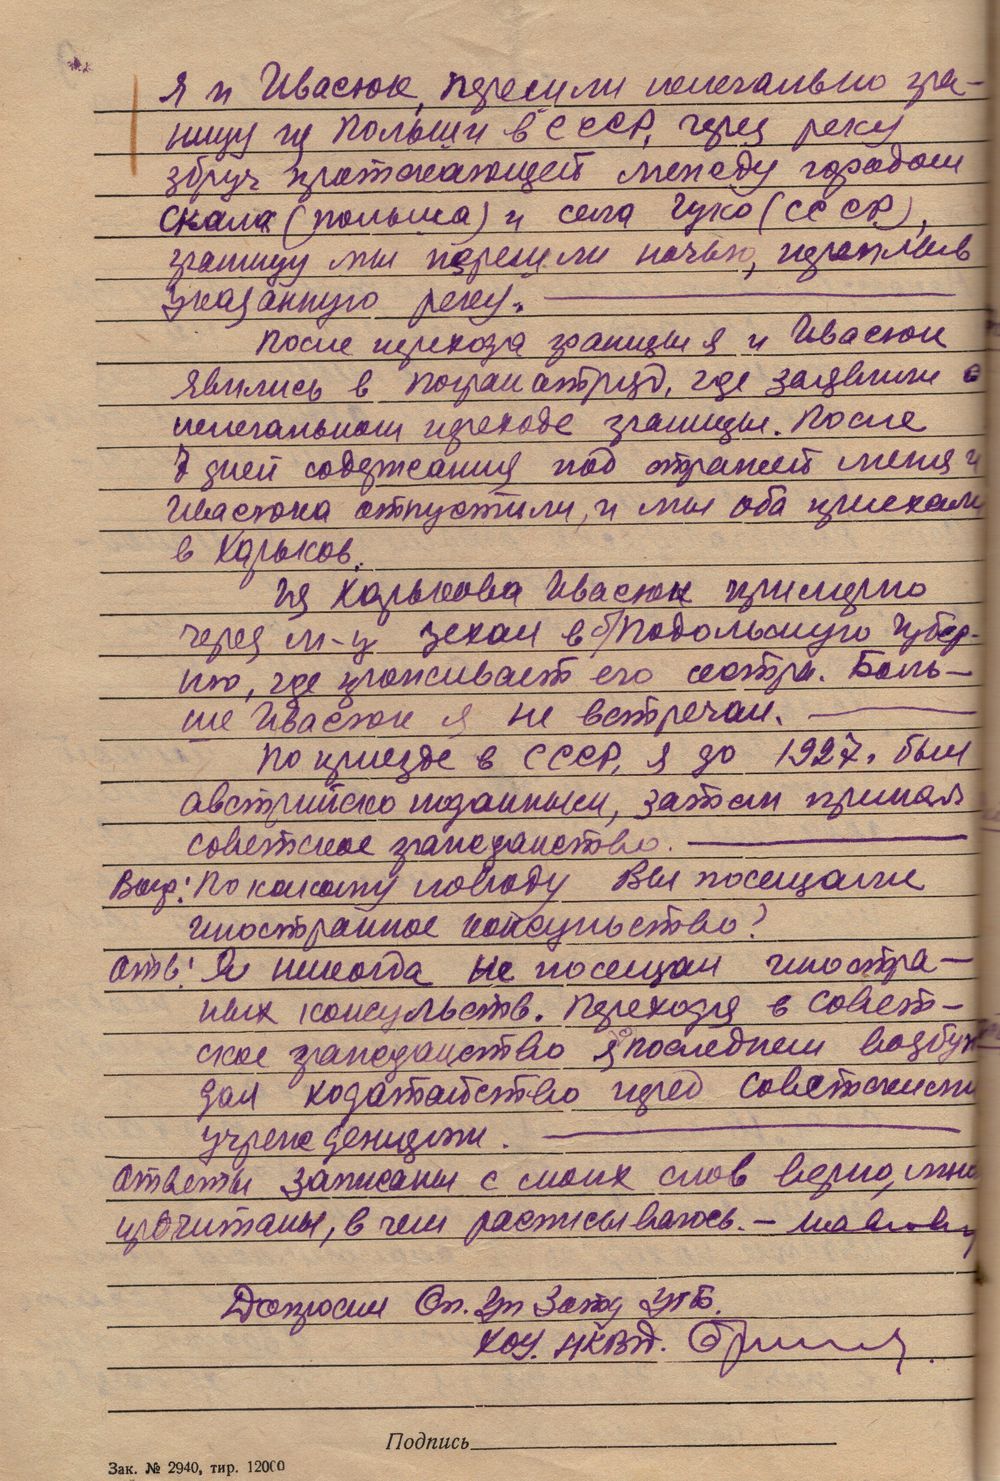 Я и Ивасюк, перешли нелегально гра-
ницу из Польши в СССР, через реку
збруч протекающей между городом
Скала (Польша) и села Гуко (СССР),
границу мы перешли ночью, переплыв
указанную реку.
После перехода границы я и Ивасюк
явились в погранотряд, где заявили о
нелегальном переходе границы. После
7 дней содержания под стражей меня и
Ивасюка отпустили, и мы оба приехали
в Харьков.
Из Харькова Ивасюк примерно
через м-ц уехал в б/Подольскую Губер-
нию, где проживает его сестра. Боль-
ше Ивасюк я не встречал.
По приезде в СССР, я до 1927г. был
австрийско подданным, затем принял
советское гражданство.
Вопр: По какому поводу Вы посещали
иностранное консульство?
Отв: Я никогда не посещал иностра-
ных консульств. Переходя в совет-
ское гражданство я о последнем возбуж
дал ходатайство перед советскими
учреждениями.
Ответы записаны с моих слов верно, мною
прочитаны, в чем расписываюсь. –
Допросил Оп. Уп УГБ.
ХОУ. НКВД.
Подпись
Зак. № 2940, тир. 12000